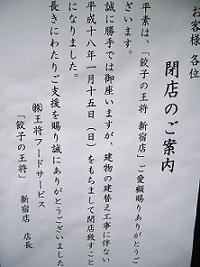 お客様 各位
閉店のご案内
平素は、「餃子の王将 新宿店」ご愛顧賜りありがとうご
ざいます。
誠に勝手では御座いますが、建物の建替え工事に伴ない
平成十八年一月十五日（日）をもちまして閉店致すこと
になりました。
長きにわたりご支援を賜り誠にありがとうございました
㈱王将フードサービス
「餃子の王将」 新宿店 店長